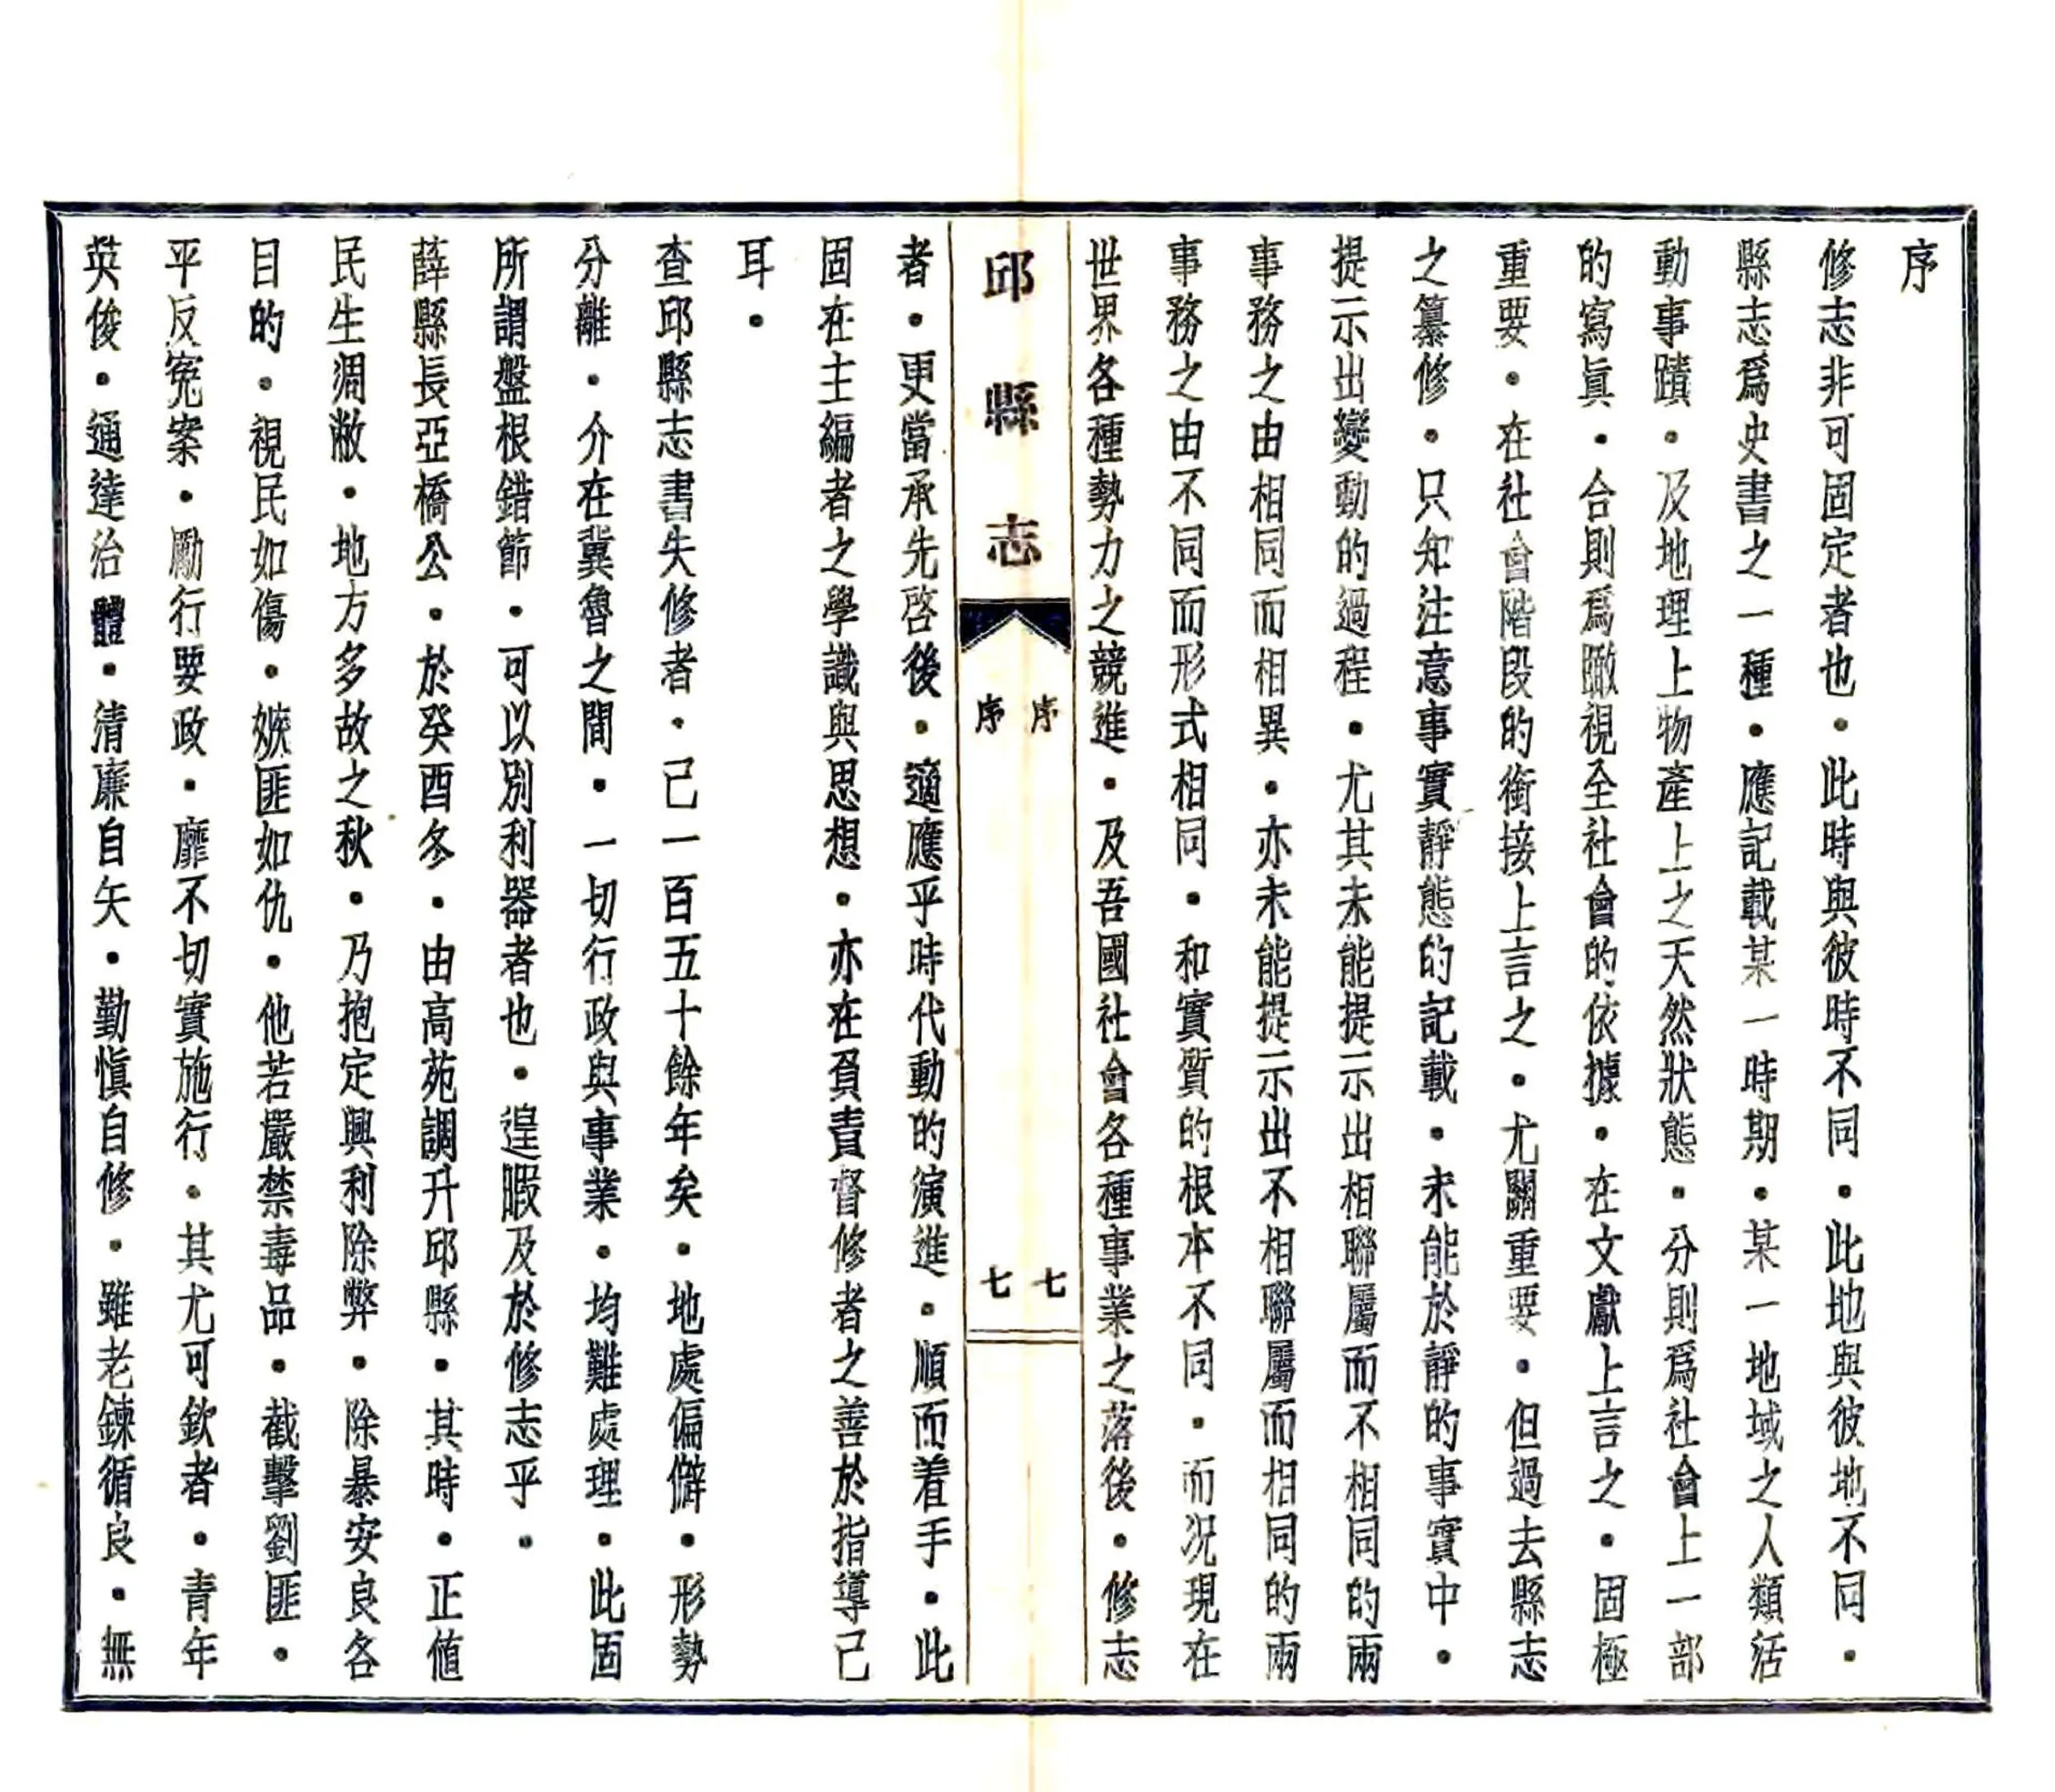 序
修志非可固定者也・此時與彼時不同・此地與彼地不同・
縣志爲史書之一種・應記載某一時期・某一地域之人類活
動事蹟・及地理上物產上之天然狀態・分則爲社會上一部
的寫眞・合則爲瞰視全社會的依據・在文獻上言之・固極
重要・在社會階段的銜接上言之・尤關重要・但過去縣志
之纂修・只知注意事實靜態的記載・未能於靜的事實中・
提示出變動的過程・尤其未能提示出相聯屬而不相同的兩
事務之由相同而相異・亦未能提示出不相聯屬而相同的兩
事務之由不同而形式相同・和實質的根本不同・而況現在
世界各種勢力之競進・及吾國社會各種事業之落後・修志
邱縣志
序 七
序 七
者・更當承先啓後・適應乎時代動的演進・順而着手・此
固在主編者之學識與思想・亦在負責督修者之善於指導己
耳・
查邱縣志書失修者・己一百五十餘年矣・地處偏僻・形勢
分離・介在冀魯之間・一切行政與事業・均難處理・此固
所謂盤根錯節・可以別利器者也・遑暇及於修志乎・
薛縣長亞橋公・於癸酉冬・由高苑調升邱縣・其時・正値
民生凋敝・地方多故之秋・乃抱定興利除弊・除暴安良各
目的・視民如傷・嫉匪如仇・他若嚴禁毒品・截擊劉匪・
平反冤案・勵行要政・靡不切實施行・其尤可欽者・青年
英俊・通達治體・清廉自矢・勤愼自修・雖老鍊循良・無